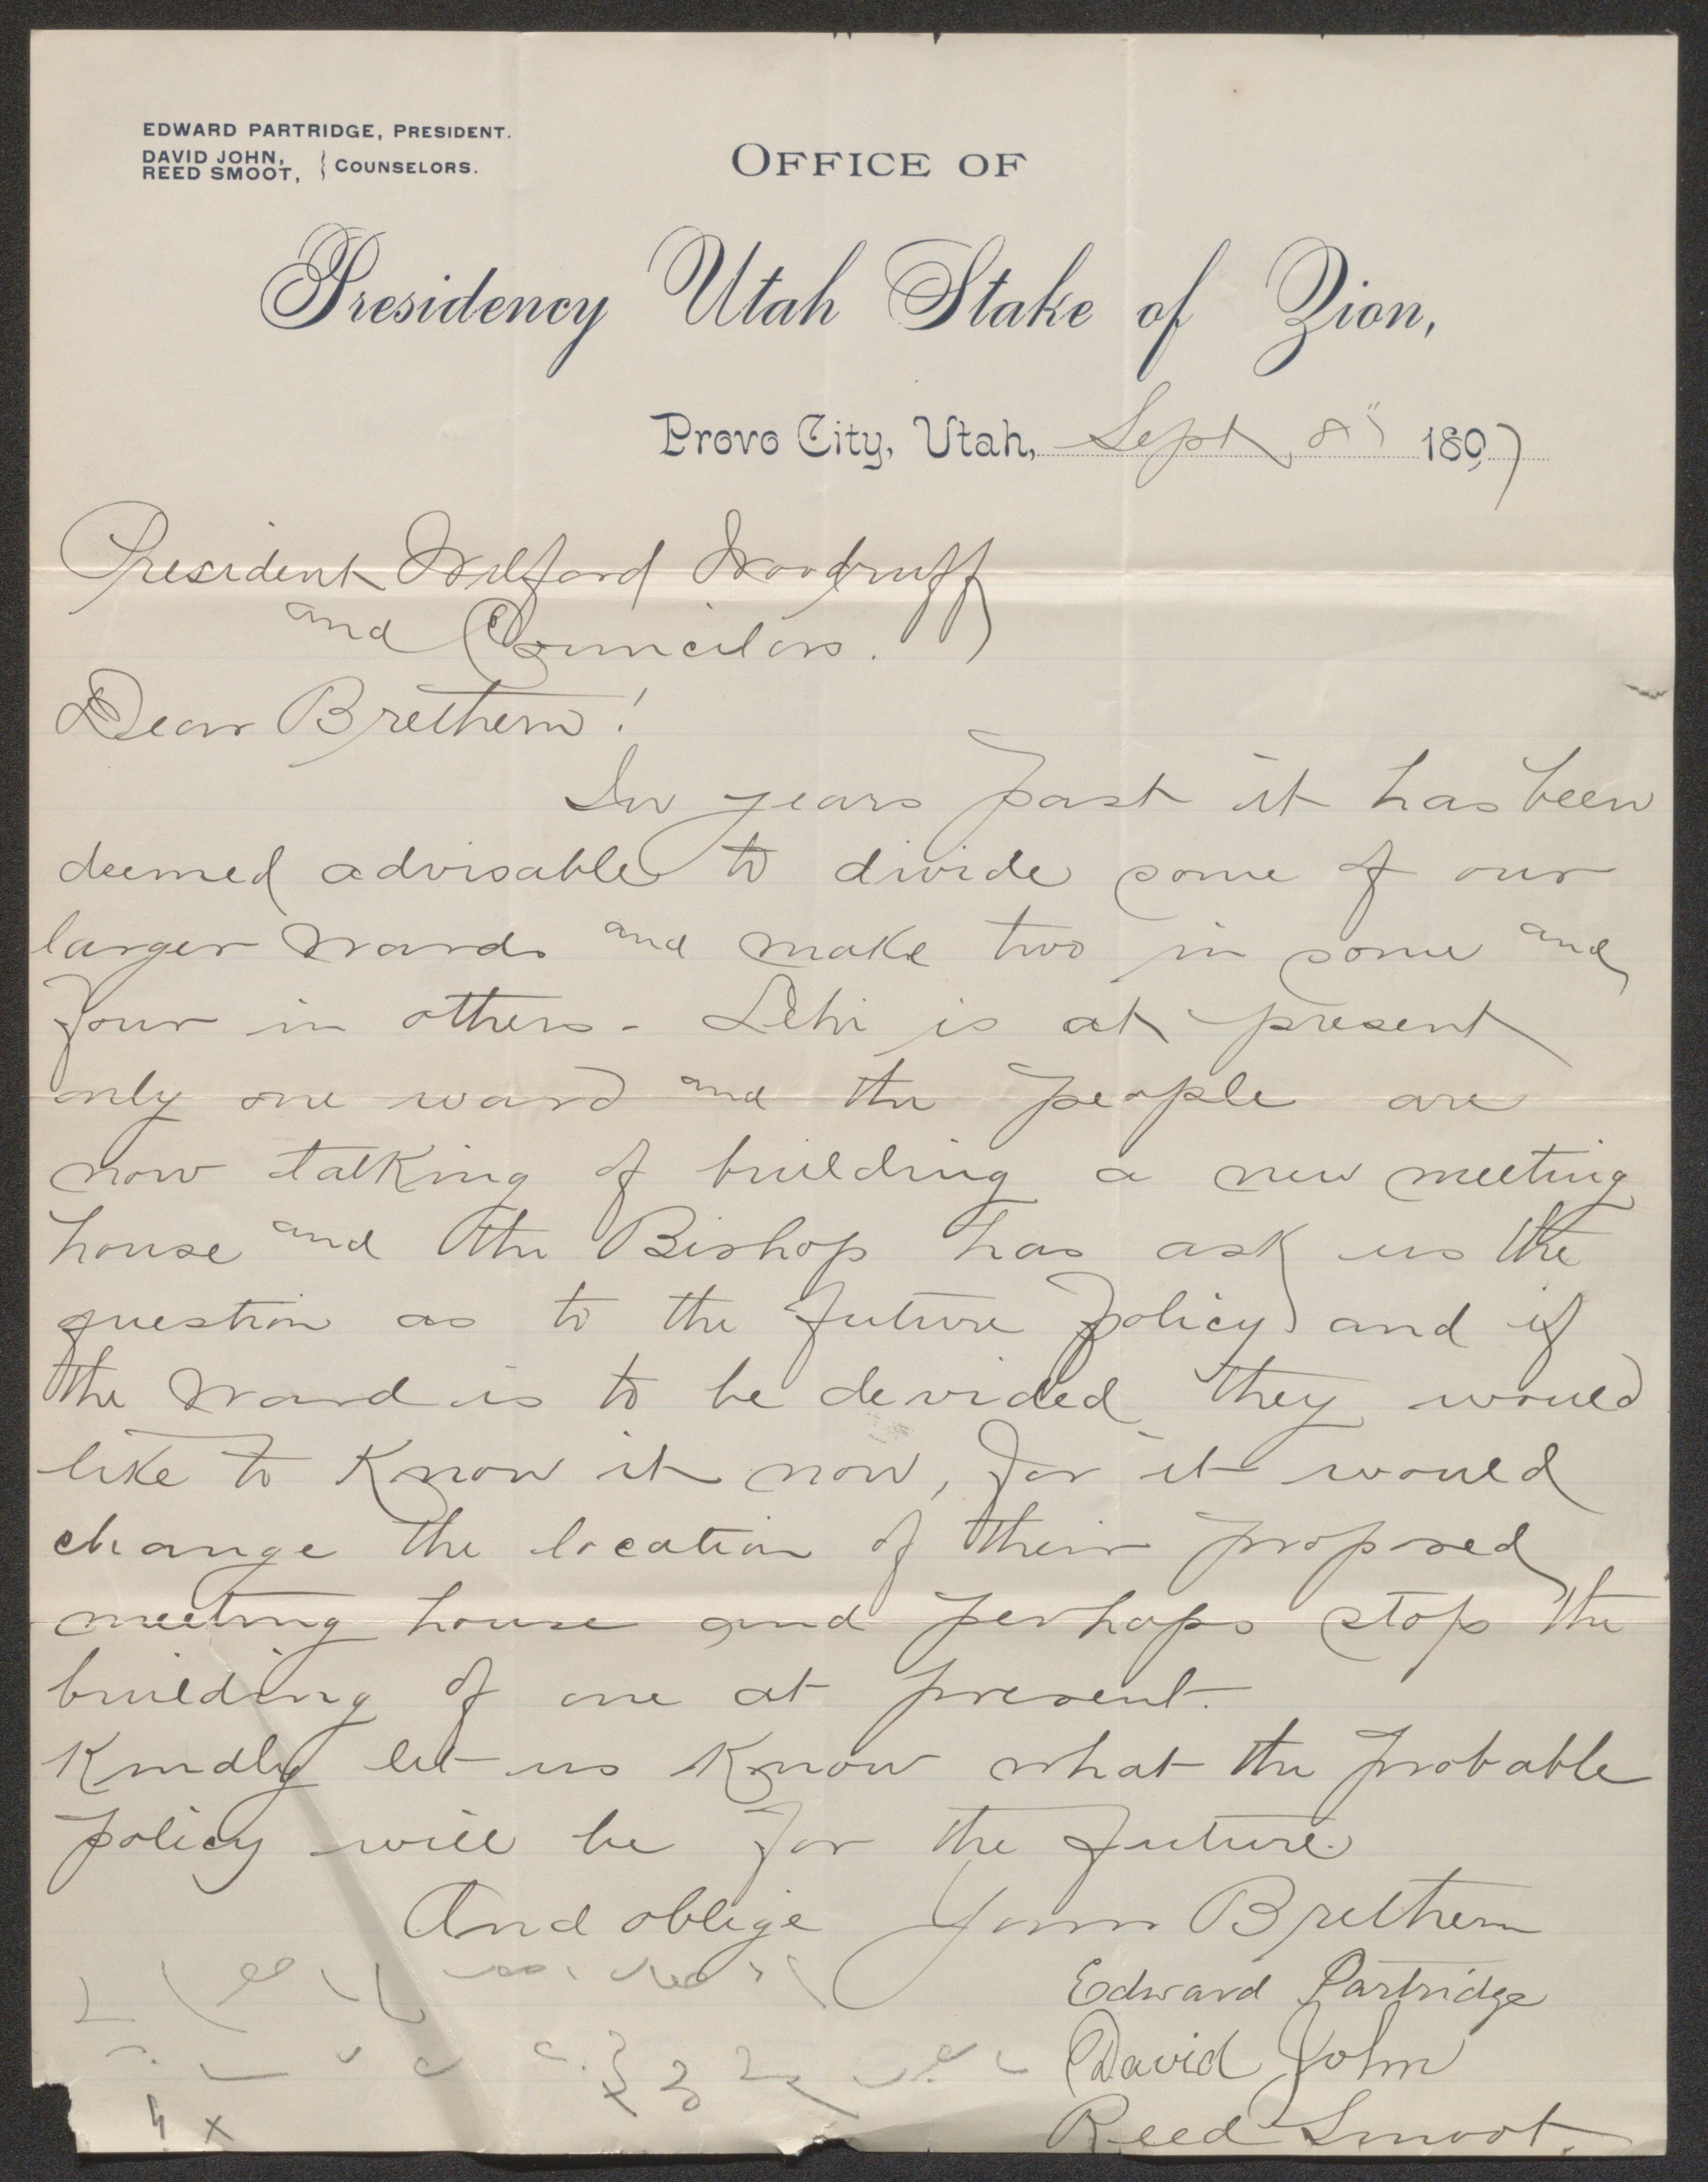 EDWARD PARTRIDGE, PRESIDENT.
DAVID JOHN,
REED SMOOT, } COUNSELORS.
OFFICE OF
Presidency Utah Stake of Zion,
Provo City, Utah, Sept, 8" 1897
President Wilford Woodruff
and Councilors.
Dear Brethern!
In years past it has been
deemed advisable to divide some of our
larger Wards and make two in some and
four in others - Lehi is at present
only one ward and the people are
now talking of building a new meeting
house and the Bishop has ask us the
question as to the future policy and if
the Ward is to be devided they would
like to know it now, for it would
change the location of their proposed
meeting house and perhaps stop the
building of one at present.
Kindly let us know what the probable
policy will be for the future.
And oblige Your Brethern
Edward Partridge
David John
Reed Smoot.